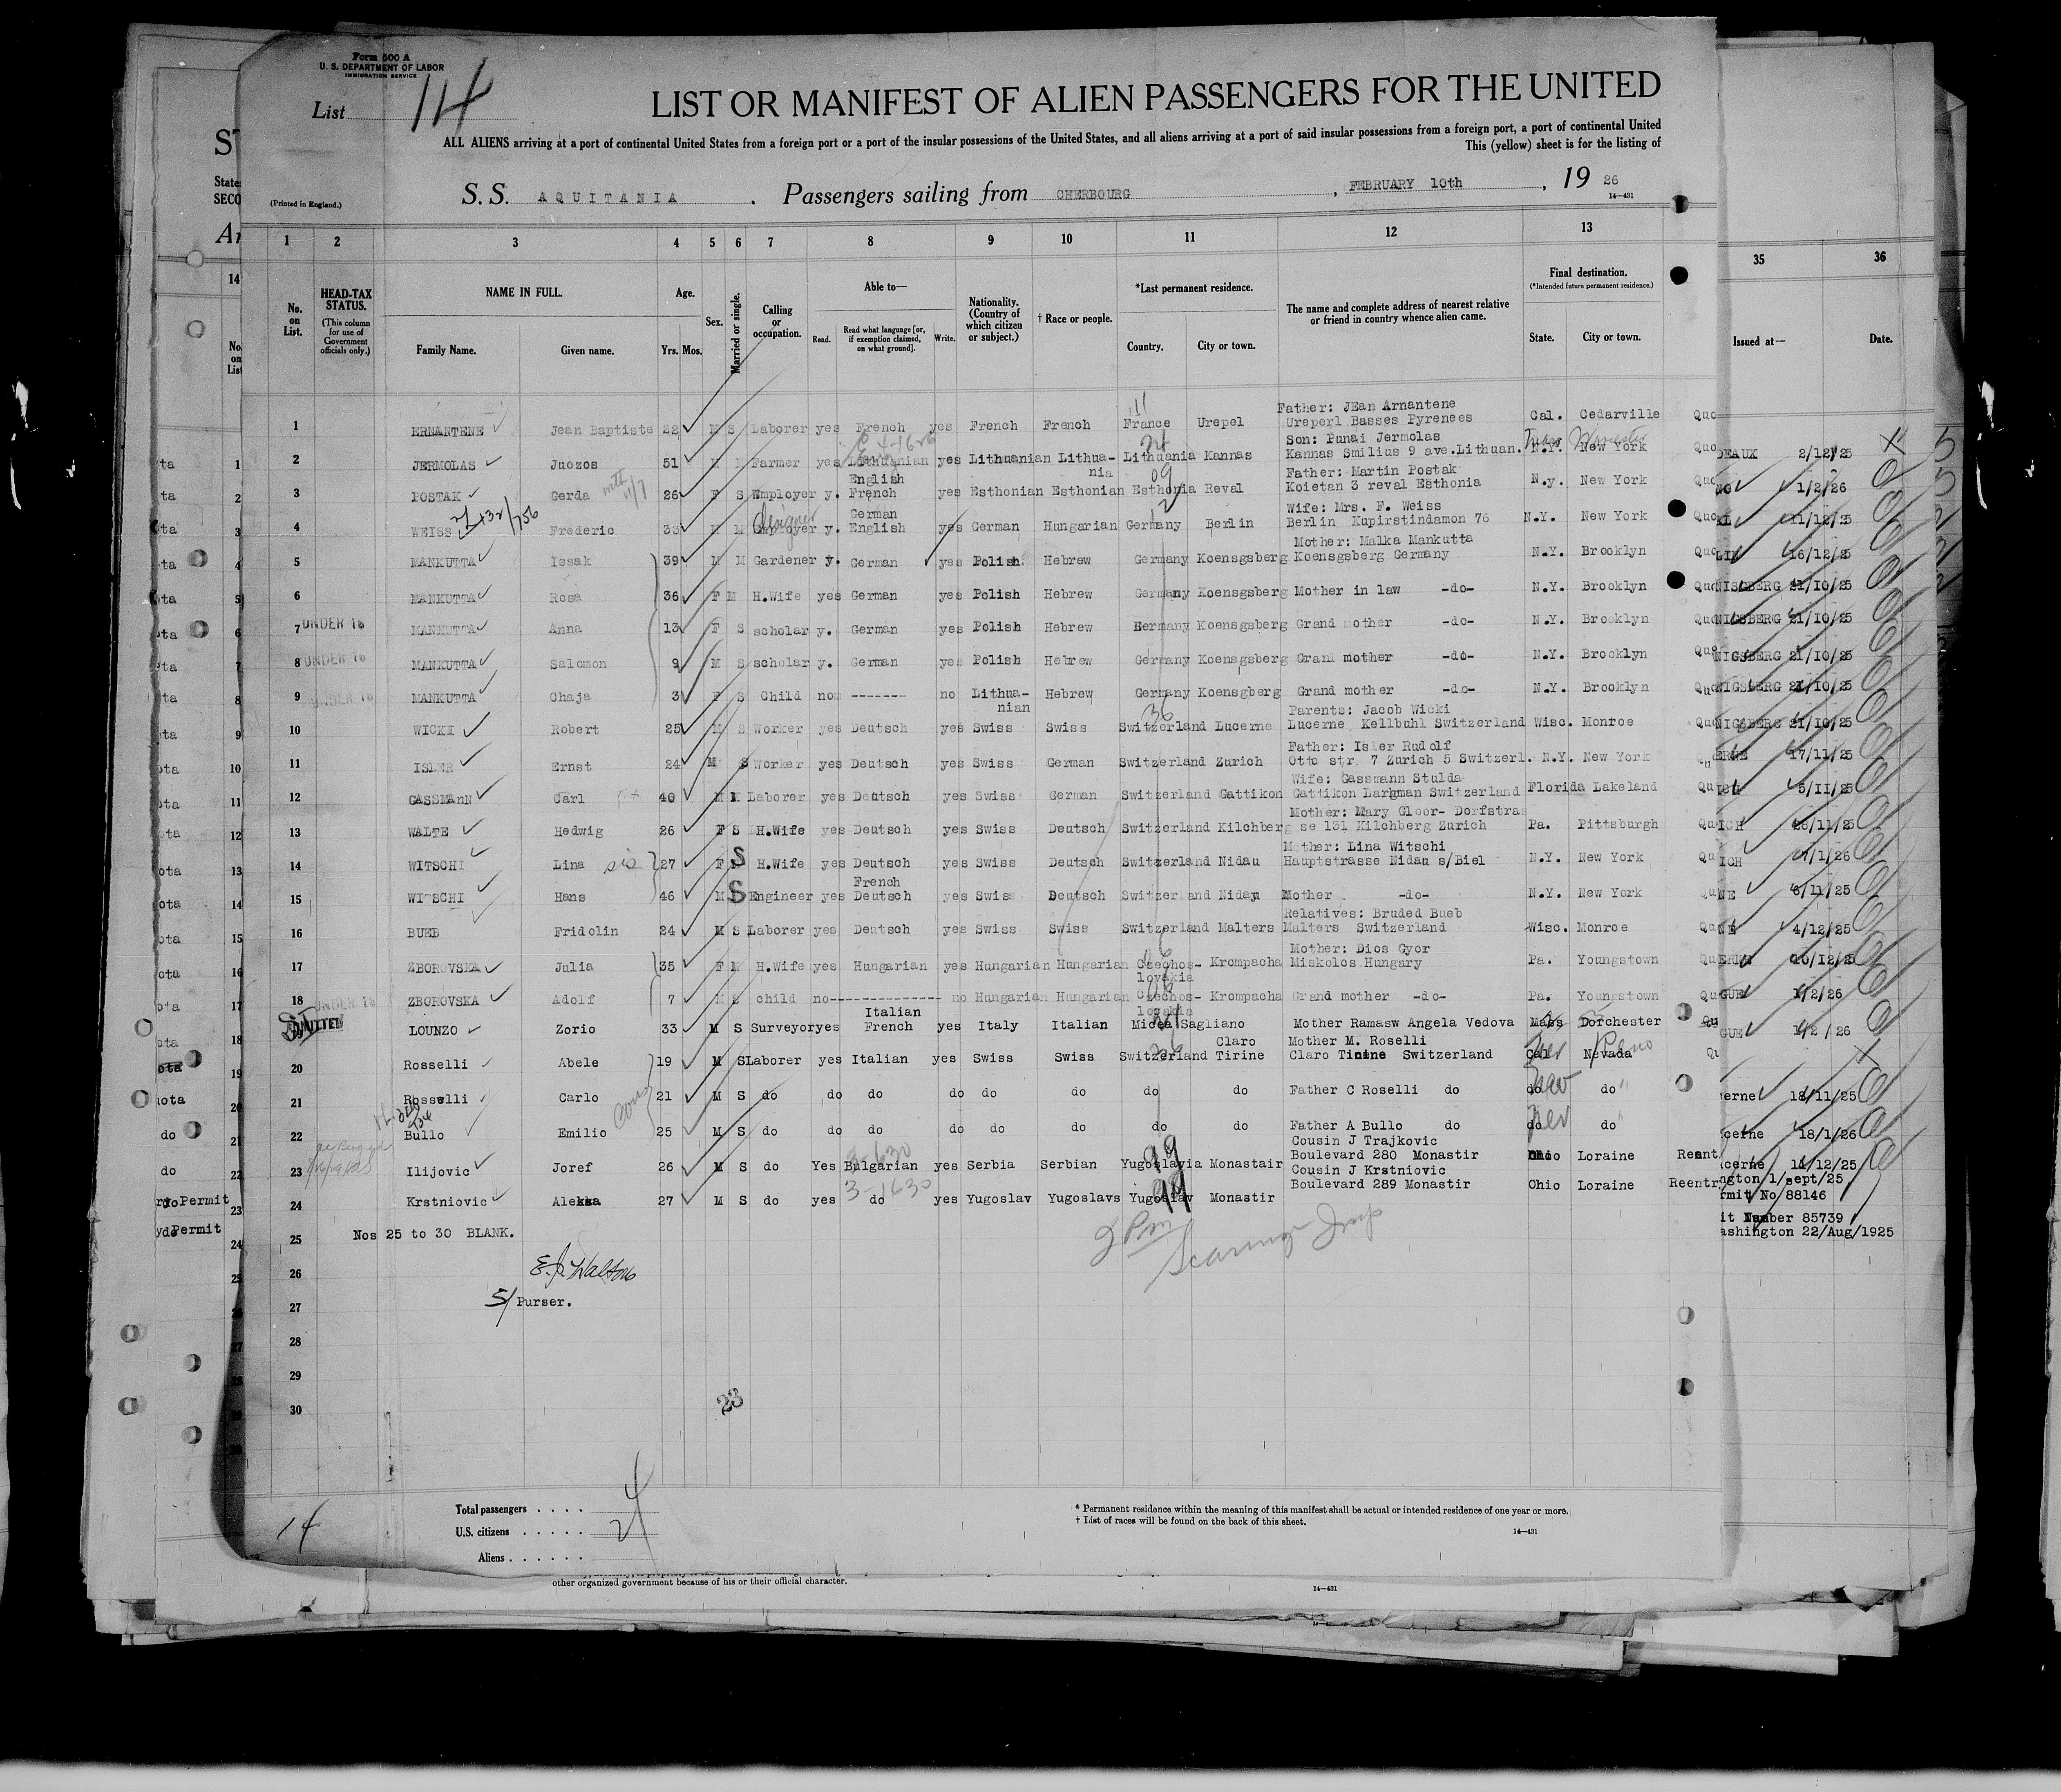 Form 500 A
U. S. DEPARTMENT OF LABOR
IMMIGRATION SERVICE
List 14
LIST OR MANIFEST OF ALIEN PASSENGERS FOR THE UNITED
ALL ALIENS arriving at a port of continental United States from a foreign port or a port of the insular possessions of the United States, and all aliens arriving at a port of said insular possessions from a foreign port, a port of continental United
This (yellow) sheet is for the listing of
(Printed in England.)
S. S. AQUITANIA . Passengers sailing from CHERBOURG , FEBRUARY 10th , 19 26
14—431
1 2 3 4 5 6 7 8 9 10 11 12 13 35 36
No. on List.
HEAD-TAX STATUS.
(This column for use of Government officials only.)
NAME IN FULL.
Family Name. Given name.
Age.
Yrs. Mos.
Sex.
Married or single.
Calling or occupation.
Able to—
Read. Read what language [or, if exemption claimed, on what ground]. Write.
Nationality. (Country of which citizen or subject.)
† Race or people.
*Last permanent residence.
Country. City or town.
The name and complete address of nearest relative or friend in country whence alien came.
Final destination.
(*Intended future permanent residence.)
State. City or town.
Issued at— Date.
Father: JEan Arnantene
1 ERNANTENE Jean Baptiste 22 M S Laborer yes French yes French French France Urepel Ureperl Basses Pyrenees Cal. Cedarville Quo
Son: Punai Jermolas
2 JERMOLAS Juozos 51 M M Farmer yes Lithuanian yes Lithuanian Lithua-nia Lithuania Kannas Kannas Smilius 9 ave.Lithuan. N.Y. New York Quo
English Father: Martin Postak
3 POSTAK Gerda 26 F S Employer y. French yes Esthonian Esthonian Esthonia Reval Koietan 3 reval Esthonia N.y. New York Quo
German Wife: Mrs. F. Weiss
4 WEISS Frederic 33 M M Employer y. English yes German Hungarian Germany Berlin Berlin Kupirstindamon 76 N.Y. New York Quo
designer
Mother: Malka Mankutta
5 MANKUTTA Issak 39 M M Gardener y. German yes Polish Hebrew Germany Koensgsberg Koensgsberg Germany N.Y. Brooklyn Quo
6 MANKUTTA Rosa 36 F M H.Wife yes German yes Polish Hebrew Germany Koensgsberg Mother in law -do- N.Y. Brooklyn Quo
7 UNDER 16 MANKUTTA Anna 13 F S scholar y. German yes Polish Hebrew Germany Koensgsberg Grand mother -do- N.Y. Brooklyn Quo
8 UNDER 16 MANKUTTA Salomon 9 M S scholar y. German yes Polish Hebrew Germany Koensgsberg Grand mother -do- N.Y. Brooklyn Quo
9 UNDER 16 MANKUTTA Chaja 3 F S Child no ------- no Lithua-nian Hebrew Germany Koensgberg Grand mother -do- N.Y. Brooklyn Quo
Parents: Jacob Wicki
10 WICKI Robert 25 M S Worker yes Deutsch yes Swiss Swiss Switzerland Lucerne Lucerne Kellbuhl Switzerland Wisc. Monroe Quo
Father: Isler Rudolf
11 ISLER Ernst 24 M S Worker yes Deutsch yes Swiss German Switzerland Zurich Otto str. 7 Zurich 5 Switzerl. N.Y. New York Qu
Wife: Gassmann Stulda
12 GASSMAnN Carl 40 M M Laborer yes Deutsch yes Swiss German Switzerland Gattikon Gattikon Largman Switzerland Florida Lakeland Qu
Mother: Mary Gloor- Dorfstras
13 WALTE Hedwig 26 F S H.Wife yes Deutsch yes Swiss Deutsch Switzerland Kilchberg se 131 Kilchberg Zurich Pa. Pittsburgh Qu
Mother: Lina Witschi
14 WITSCHI Lina sis 27 F S H.Wife yes Deutsch yes Swiss Deutsch Switzerland Nidau Hauptstrasse Nidau s/Biel N.Y. New York Qu
French
15 WITSCHI Hans 46 M S Engineer yes Deutsch yes Swiss Deutsch Switzerland Nidau Mother -do- N.Y. New York Qu
Relatives: Bruded Bueb
16 BUEB Fridolin 24 M S Laborer yes Deutsch yes Swiss Swiss Switzerland Malters Malters Switzerland Wisc. Monroe Qu
Mother: Dios Gyor
17 ZBOROVSKA Julia 35 F M H.Wife yes Hungarian yes Hungarian Hungarian Czechos-lovakia Krompacha Miskolcs Hungary Pa. Youngstown Qu
18 UNDER 16 ZBOROVSKA Adolf 7 M S child no-------------- no Hungarian Hungarian Czechos-lovakia Krompacha Grand mother -do- Pa. Youngstown Qu
Italian
ADMITTED LOUNZO Zorio 33 M S Surveyor yes French yes Italy Italian Sagliano Mother Ramasw Angela Vedova Mass Dorchester Qu
Claro Mother M. Roselli
20 Rosselli Abele 19 M S Laborer yes Italian yes Swiss Swiss Switzerland Tirine Claro Tinine Switzerland Cal Nevada Qu
Reno
21 Rosselli Carlo 21 M S do do do do do do do do Father C Roselli do do do
Nev
22 Bullo Emilio 25 M S do do do do do do do do Father A Bullo do do do
Nev
Cousin J Trajkovic
23 Ilijovic Joref 26 M S do Yes Bulgarian yes Serbia Serbian Yugoslavia Monastair Boulevard 280 Monastir Ohio Loraine Reent
3-1630
Cousin J Krstniovic
24 Krstniovic Aleksa 27 M S do yes do yes Yugoslav Yugoslavs Yugoslav Monastir Boulevard 289 Monastir Ohio Loraine Reentr
25 Nos 25 to 30 BLANK.
2 Pm
26 E. J. Walton
27 S/ Purser.
28
29
30
23
DEAUX 2/12/25
1/2/26
11/12/25
LIN 16/12/25
NISGBERG 21/10/25
NIGSBERG 21/10/25
NIGSBERG 21/10/25
NIGSBERG 21/10/25
NIGSBERG 21/10/25
ERNE 17/11/25
ICH 5/11/25
ICH 26/11/25
ICH 7/1/26
NE 6/11/25
NE 4/12/25
ERNE 10/12/25
GUE 1/2/26
GUE 1/2/26
erne 18/11/25
cerne 18/1/26
cerne 11/12/25
ngton 1/sept/25
rmit No 88146
it Number 85739
ashington 22/Aug/1925
Total passengers . . . .
U.S. citizens . . . . .
Aliens . . . . . .
24
14
* Permanent residence within the meaning of this manifest shall be actual or intended residence of one year or more.
† List of races will be found on the back of this sheet.
14—431
other organized government because of his or their official character.
14—431